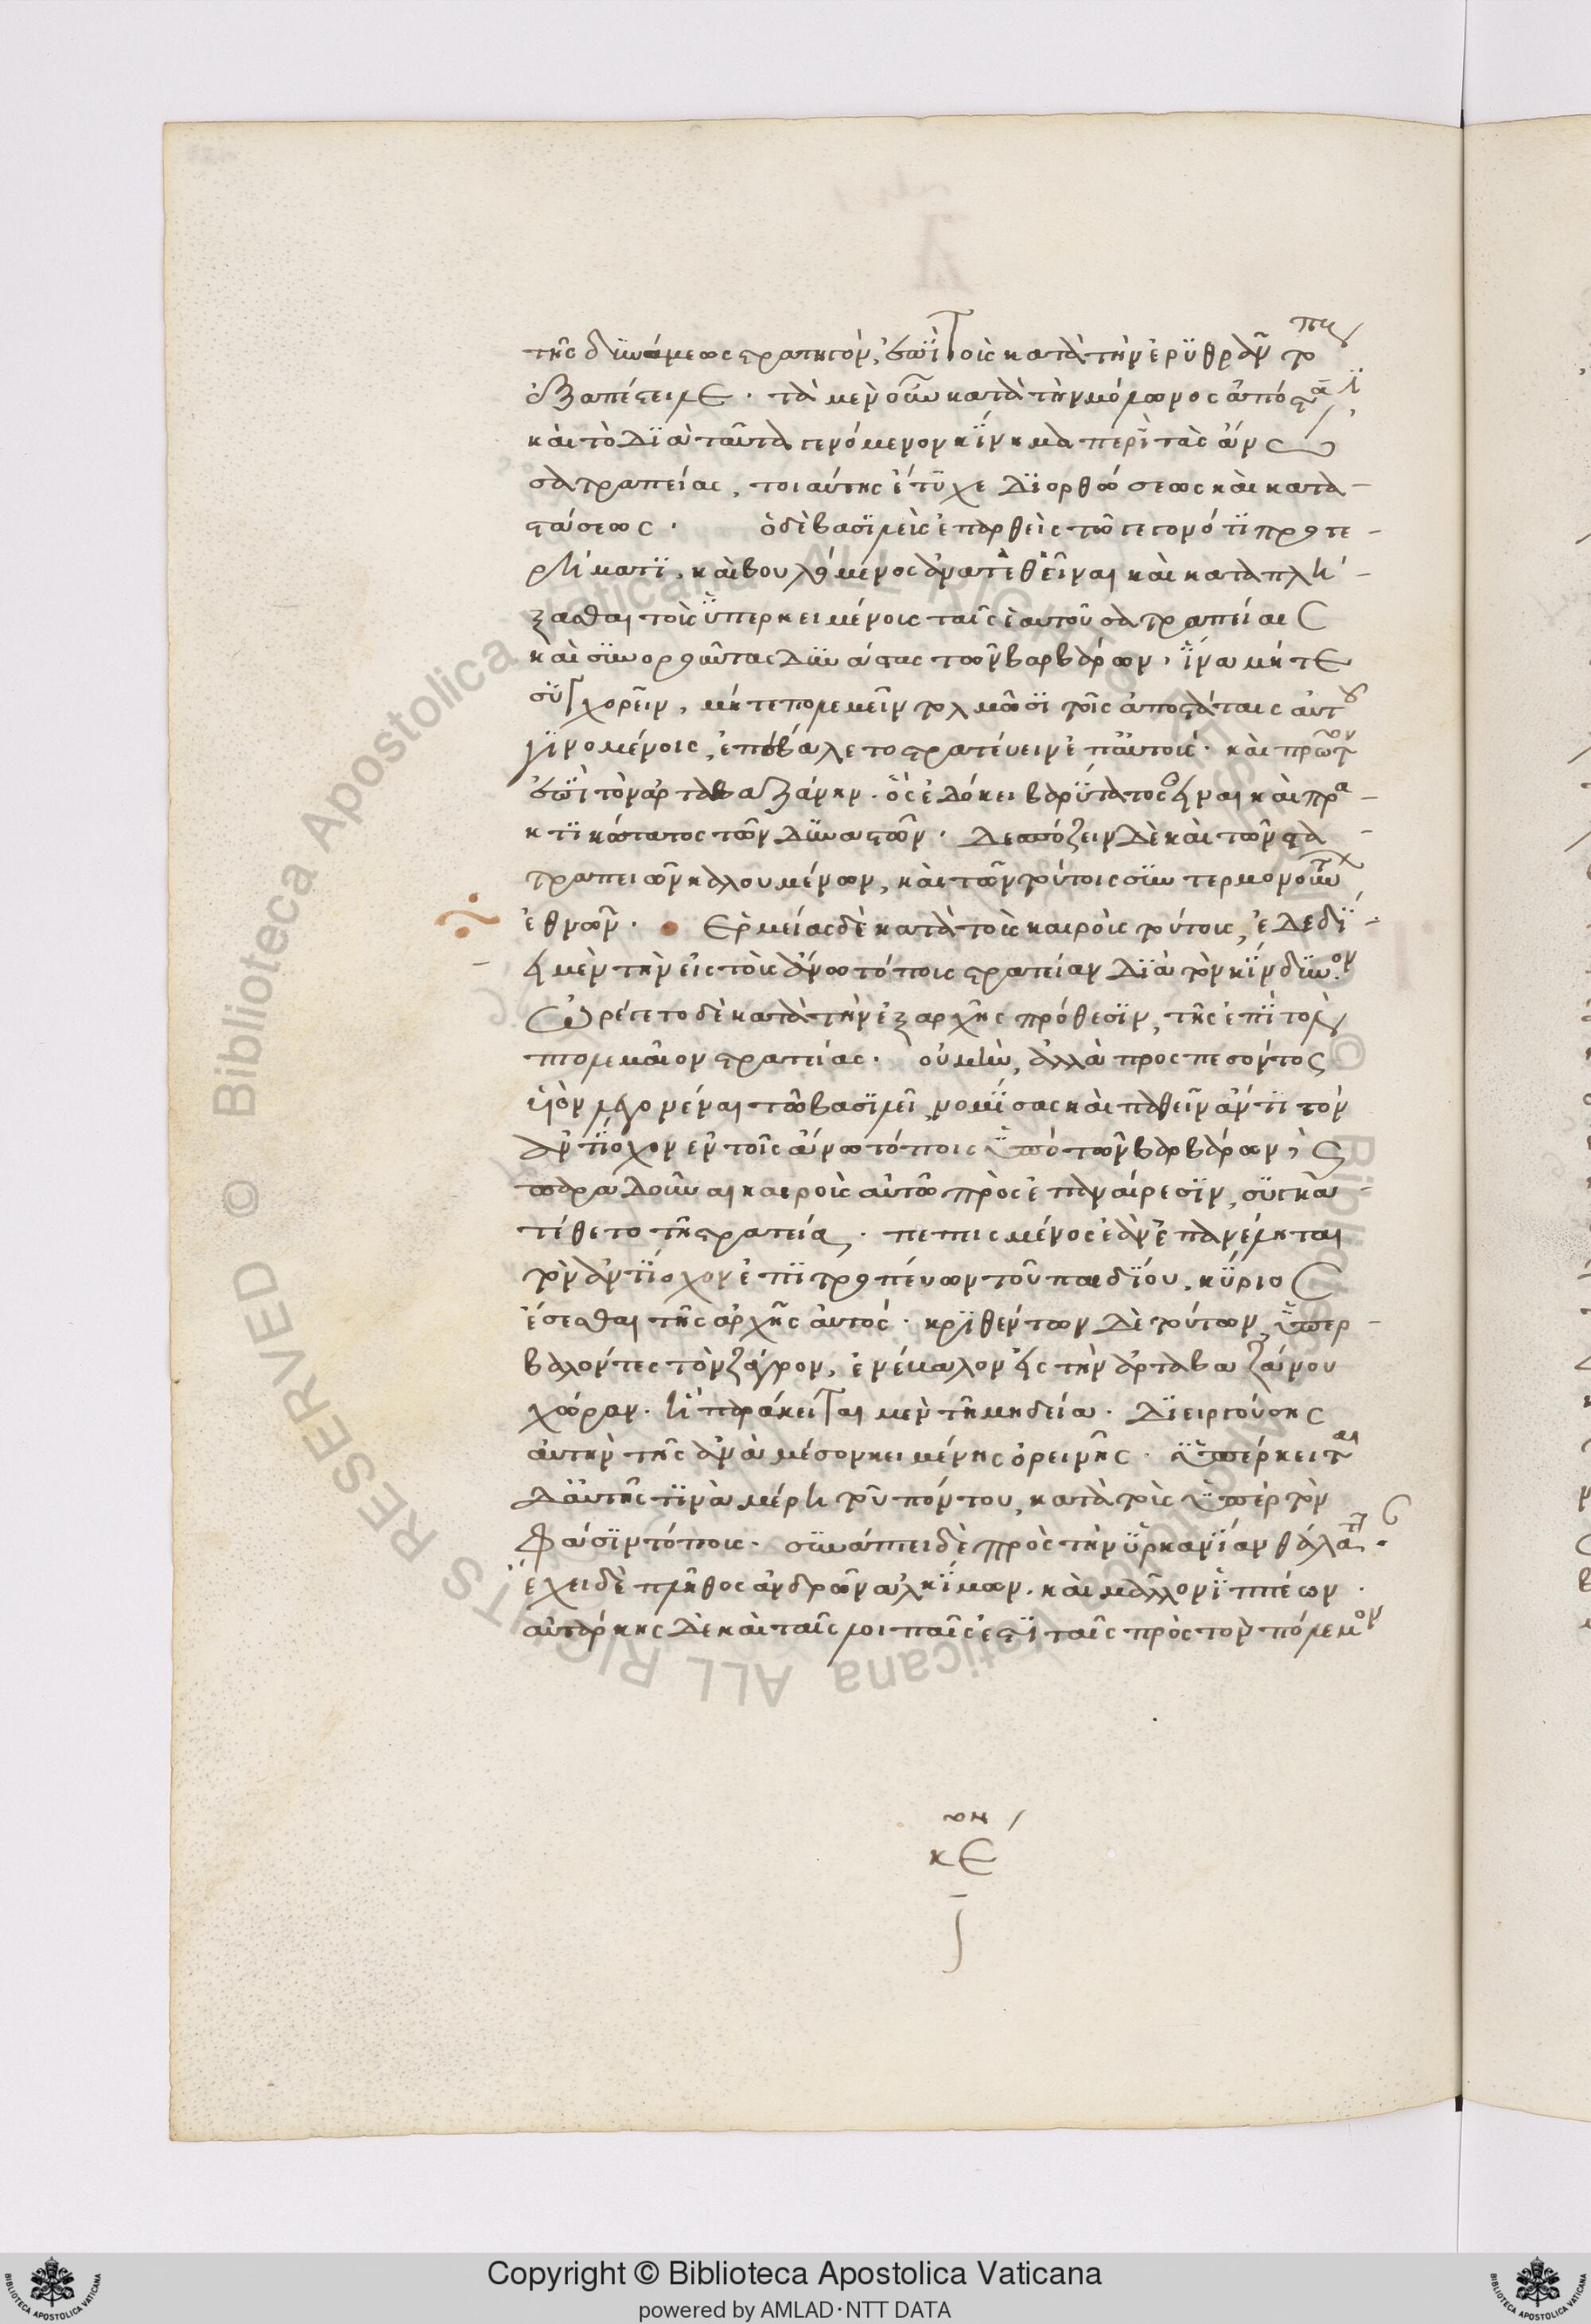 τῆς δυνάμεως στρατηγὸν, ἐπὶ τοὺς κατὰ τὴν ἐρυθρὰν τόπους
ἐξαπέστειλε. τὰ μὲν οὖν κατὰ τὴν μόλωνος ἀπόστασιν
καὶ τὸ διὰ ταῦτα γενόμενον κίνημα περὶ τὰς ἄνω
σατραπείας, τοιαύτης ἔτυχε διορθώσεως καὶ κατα-
στάσεως. ὁ δὲ βασιλεὺς ἐπαρθεὶς τῶ γεγονότι προτε-
ρήματι, καὶ βουλόμενος ἀνατεθεῖναι καὶ καταπλή-
ξασθαι τοὺς ὑπερκειμένους ταῖς ἑαυτοῦ σατραπείαις
καὶ συνοροῦντας δυνάστας τῶν βαρβάρων, ἵνα μήτε
συγχορεῖν, μήτε πολεμεῖν τολμῶσι τοῖς ἀποστάταις αὐτοῦ
γινομένοις, ἐπεβάλετο στρατεύειν ἐπ' αὐτούς. καὶ πρῶτον
ἐπὶ τὸν ἀρταβαζάνην. ὃς ἐδόκει βαρύτατος εἶναι καὶ πρα-
κτικώτατος τῶν δυναστῶν. δεσπόζειν δὲ καὶ τῶν σα-
τραπειῶν καλουμένων, καὶ τῶν τούτοις συντερμονούντων
ἐθνῶν. Ἑρμείας δὲ κατὰ τοὺς καιροὺς τούτους, ἐδεδί-
ει μὲν τὴν εἰς τοὺς ἄνω τόπους στρατείαν διὰ τὸν κίνδυνον.
Ὠρέγετο δὲ κατὰ τὴν ἐξαρχῆς πρόθεσιν, τῆς ἐπὶ τὸν
πτολεμαῖον στρατείας. οὐ μὴν, ἀλλὰ προσπεσόντος
υἱὸν γεγονέναι τῶ βασιλεῖ, νομίσας καὶ παθεῖν ἄν τι τὸν
ἀντίοχον ἐν τοῖς ἄνω τόποις ὑπὸ τῶν βαρβάρων, καὶ
παραδοῦναι καιροὺς αὐτῶ πρὸς ἐπαναίρεσιν, συγκα-
τέθετο τῆ στρατεία. πεπισμένος ἐὰν ἐπανέληται
τὸν ἀντίοχον ἐπιτροπεύων τοῦ παιδίου, κύριος
ἔσεσθαι τῆς ἀρχῆς αὐτός. κριθέντων δὲ τούτων, ὑπερ-
βαλόντες τὸν ζάγρον, ἐνέβαλον εἰς τὴν ἀρταβαζάνου
χώραν. ἣ παράκειται μὲν τῆ μηδεία. διειργούσης
αὐτὴν τῆς ἀνὰ μέσον κειμένης ὀρεινῆς. ὑπέρκειται
δ' αὐτῆς τινὰ μέρη τοῦ πόντου, κατὰ τοὺς ὑπὲρ τὸν
φάσιν τόπους. συνάπτει δὲ πρὸς τὴν ὑρκανίαν θάλατταν.
ἔχει δὲ πλῆθος ἀνδρῶν ἀλκίμων. καὶ μᾶλλον ἱππέων.
αὐτάρκης δὲ καὶ ταῖς λοιπαῖς ἐστὶ ταῖς πρὸς τὸν πόλεμον
κε